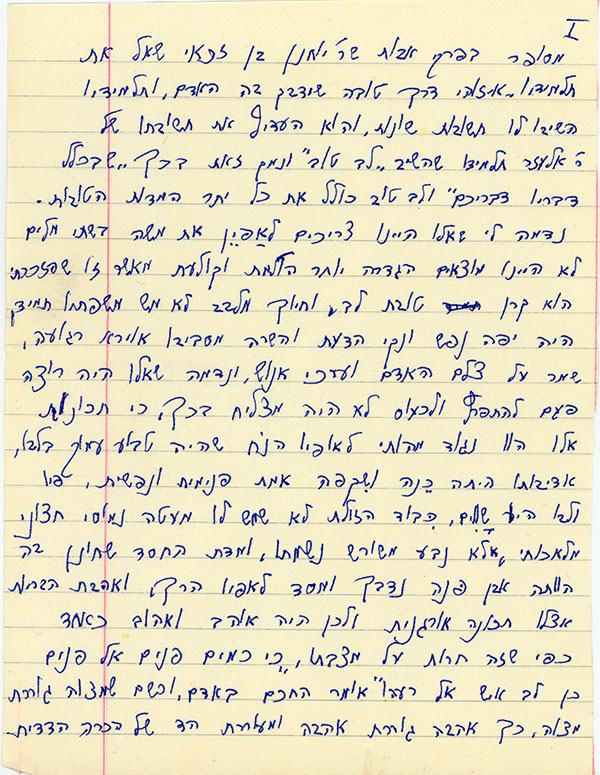 I
מסופר בפרקי אבות שר' יוחנן בן זכאי שאל את
תלמידיו "איזוהי דרך טובה שידבק בה האדם, ותלמידיו
השיבו לו תשובות שונות, והוא העדיף את תשובתו של
ר' אלעזר תלמידו שהשיב "לב טוב" ונמק זאת בכך "שבכלל
דבריו דבריכם" ולב טוב כולל את כל יתר המדות הטובות.
נדמה לי שאלו היינו צריכים לאַפיֵן את משה בשתי מלים
לא היינו מוצאים הגדרה יותר הולמת וקולעת מאשר זו שהזכרתי
הוא קרן טובת לב, וחיוך מלבב לא מש משפתיו תמיד
היה יפה נפש ונקי הדעת והשרה מסביבו אוירא רגועה,
שמר על צלם האדם וערכי אנוש, ונדמה שאלו היה רוצה
פעם להתפרץ ולכעוס לא היה מצליח בכך, כי תכונות
אלו היו נגוד מהותי לאופיו הנח שהיה טבוע עמוק בלבו,
אדיבותו היתה כֵּנה ושִקפה אמת פנימית ונפשית, פיו
ולבו היו שָוִים, כִּבוד הזולת לא שמש לו מעטה נִמוסי חצוני
מלאכותי, אלא נבע משורש נשמתו, ומדת החסד שחונן בה
היותה אבן פנה ונדבך ומסד לאפיו הרך, ואהבת הבריות
אצלו תכונה אורגנית ולכן היה אוהב ואהוב כאחד
כפי שזה חרות על מצבתו, "כי כמים פנים אל פנים
כן לב איש אל רעהו" אומר החכם באדם, וכשם שמצוה גוררת
מצוה, כך אהבה גוררת אהבה ומעוררת הד של הכרה הדדית.